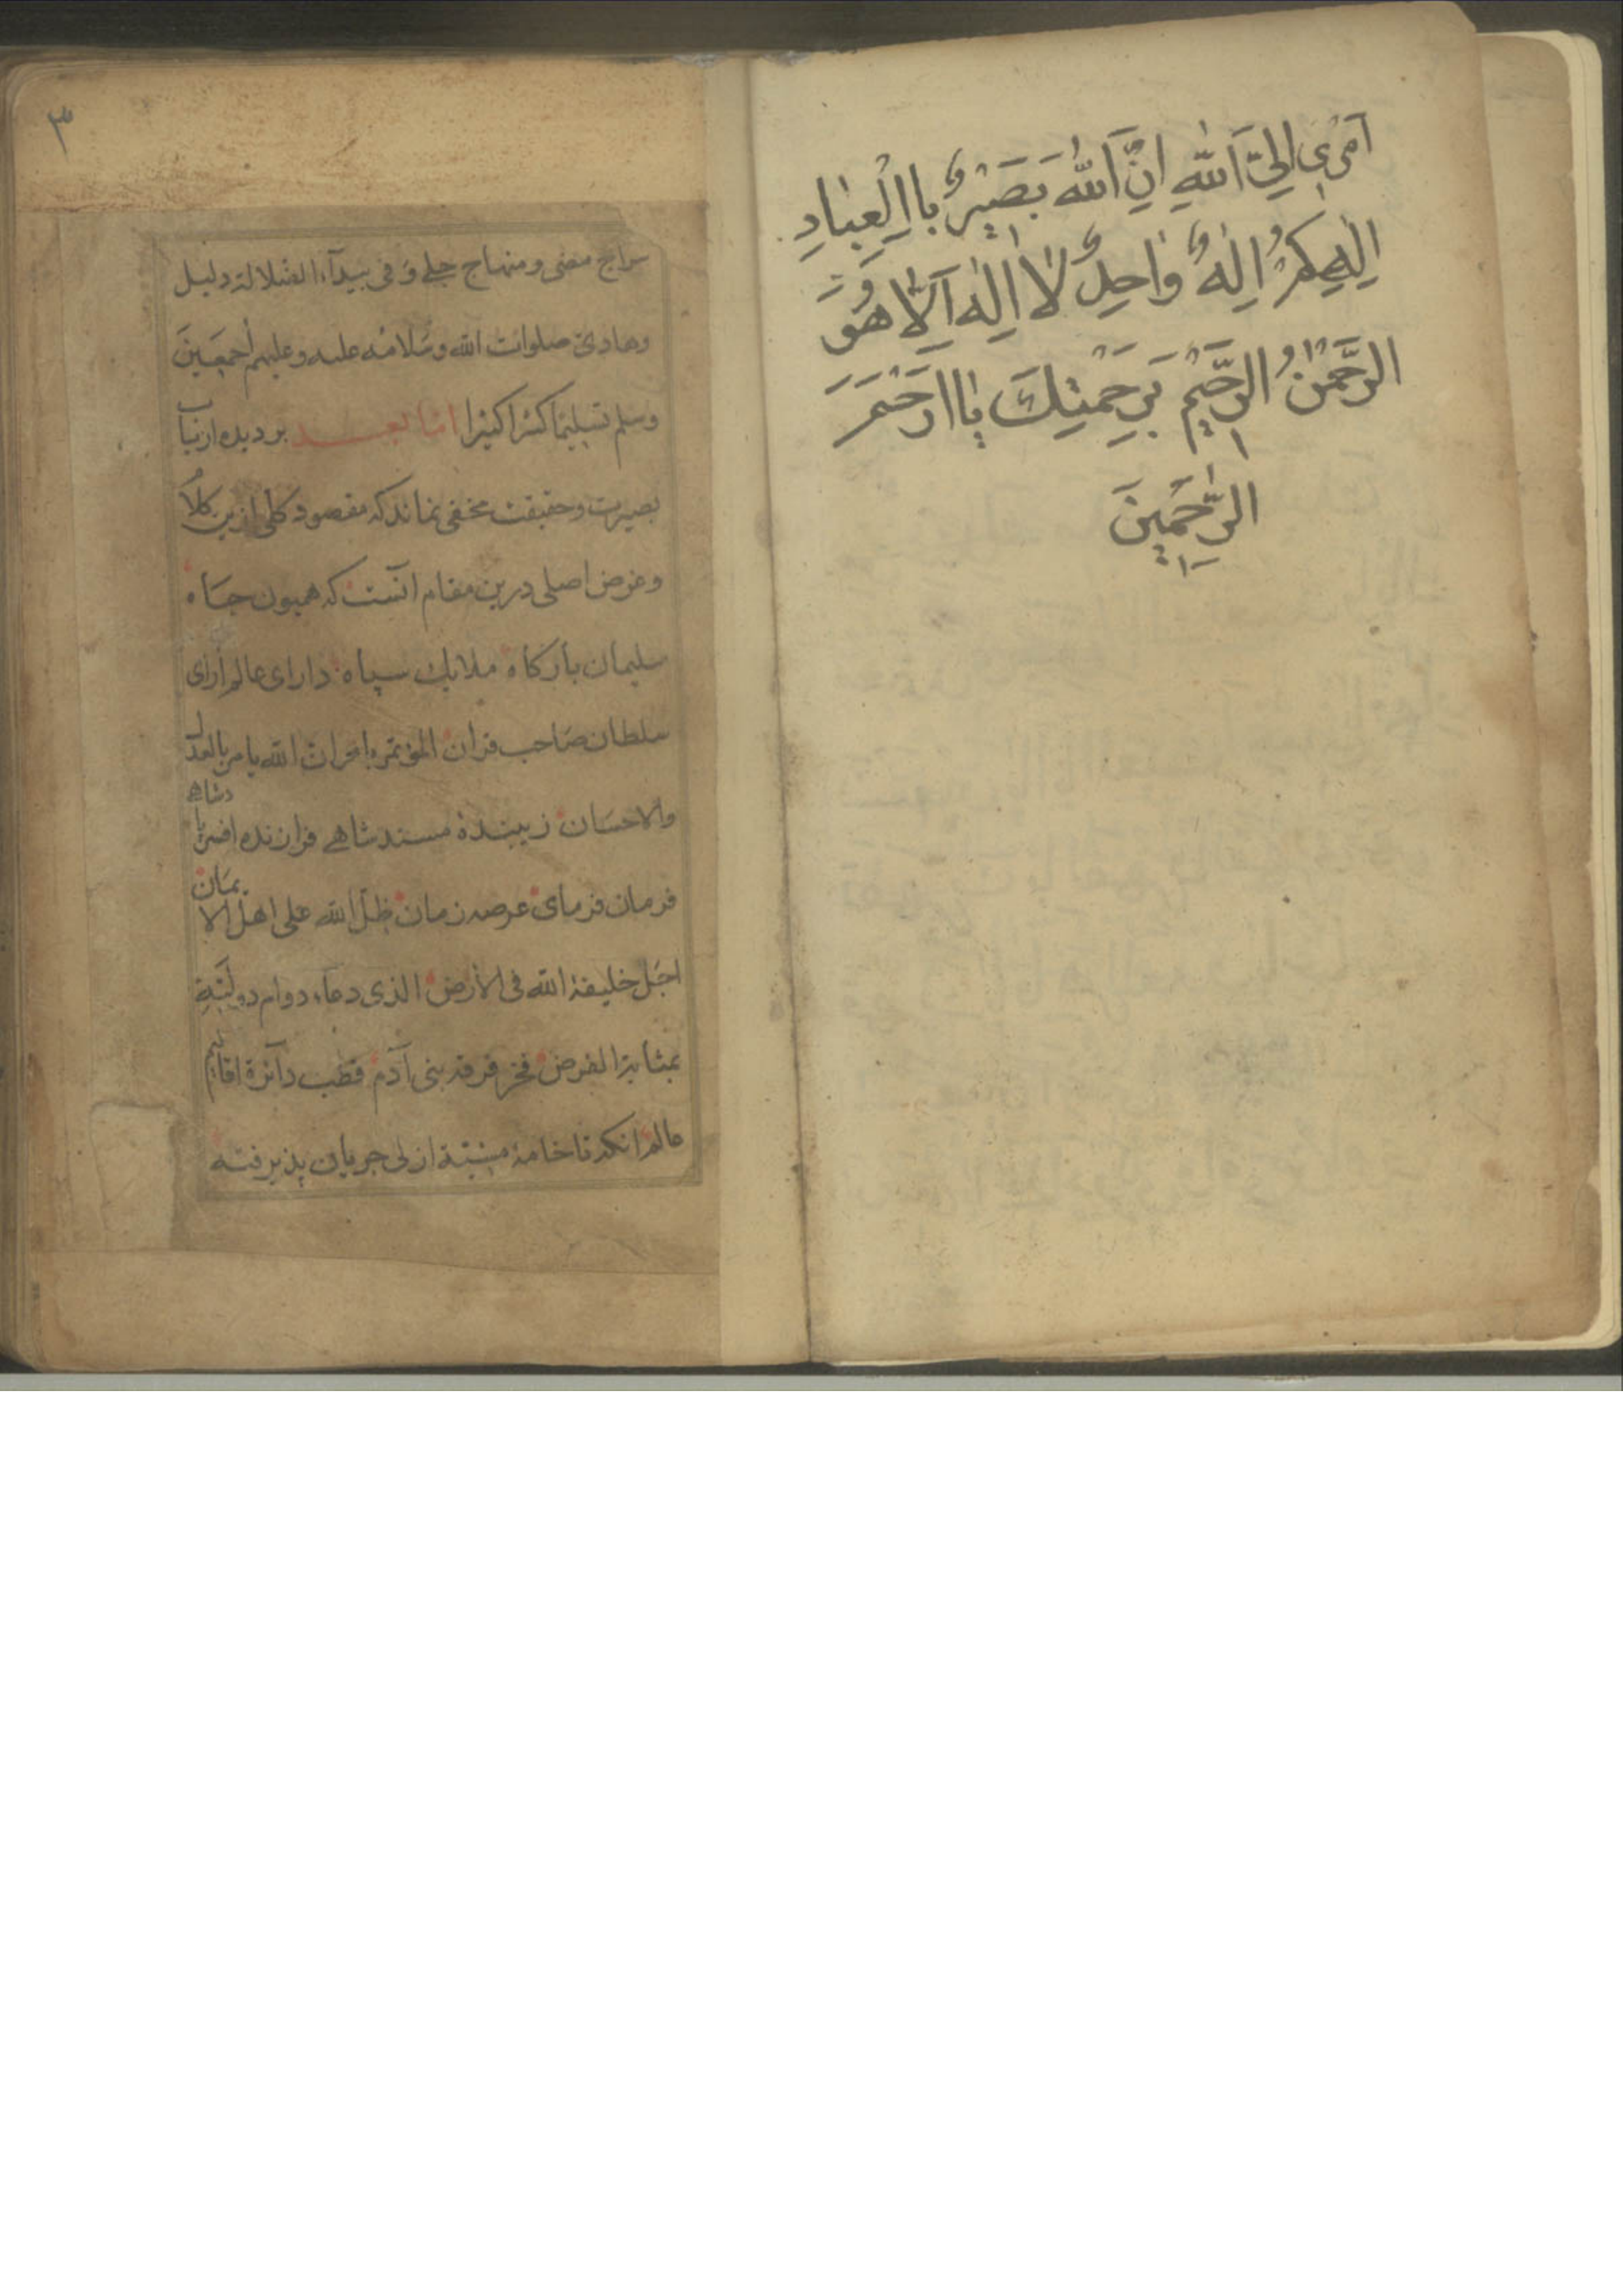 اَمْرٖی اِلَی اللّٰهِ اِنَّ اللّٰهَ بَصَیْرٌ بِااْلِعِبٰادِ
اِلٰهِکُمْ اِلٰهٌ وٰاحِدٌ لٰا اِلٰهَ اِلّٰا هُوَ
الرَّحْمٰنُ الرَّحٖیْمُ بَرِحْمَتِکَ یٰا اَرْحَمَ
الرّٰحَمِینَ
۳
سراج مضی و منهاج جلے و فی بیدآء الضلالة دلیل
وهادی صلوات الله وسلامه علیه وعلیهم أجمعین
وسلم تسلیما کثیرا کثیرا اما بعد بر دیده ارباب
بصیرت وحقیقت مخفی نماند که مقصود کلی ازین کلام
وغرض اصلی درین مقام آنست که همیون جاه
سلیمان بارکاه ملایک سپاه دارای عالم آرای
سلطان صاحب قران المؤتمر بامر ان الله یامر بالعدل
والاحسان زیبندهٔ مسند شاهے فرازنده افسر بادشاهے
فرمان فرمای عرصه زمان ظل الله علی اهل الایمان
اجل خلیفة الله فی الأرض الذی دعاء دوام دولته
بمثابة الفرض فخر فرقه بنی آدم قطب دآئرة اقالیم
عالم انکه تا خامهٔ مشیة ازلی جریان پذیرفته